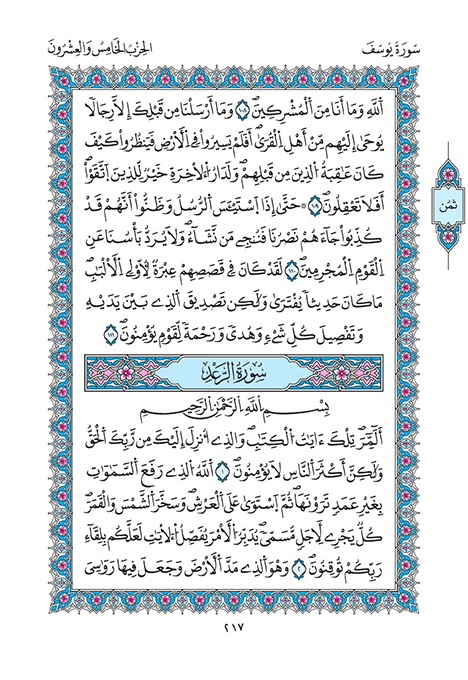 سُورَةُ يُوسُفَ
الحِزْبُ الخَامِسُ وَالعِشْرُونَ
اَللَّهِ وَمَا أَنَا مِنَ اَ۬لْمُشْرِكِينَۖ ١٠٨ وَمَا أَرْسَلْنَا مِن قَبْلِكَ إِلَّا رِجَالاٗ
يُوحَىٰ إِلَيْهِم مِّنْ أَهْلِ اِ۬لْقُر۪ىٰٓۖ أَفَلَمْ يَسِيرُواْ فِے اِ۬لْأَرْضِ فَيَنظُرُواْ كَيْفَ
كَانَ عَٰقِبَةُ اُ۬لذِينَ مِن قَبْلِهِمْۖ وَلَدَارُ اُ۬لْأٓخِرَةِ خَيْرٞ لِّلذِينَ اَ۪تَّقَوَاْۖ
أَفَلَا تَعْقِلُونَۖ ١٠٩ ۞ حَتَّىٰ إِذَا اَ۪سْتَيْـَٔسَ اَ۬لرُّسُلُ وَظَنُّواْ أَنَّهُمْ قَدْ
كُذِّبُواْ جَآءَهُمْ نَصْرُنَا فَنُنجِے مَن نَّشَآءُۖ وَلَا يُرَدُّ بَأْسُنَا عَنِ
اِ۬لْقَوْمِ اِ۬لْمُجْرِمِينَۖ ١١٠ لَقَدْ كَانَ فِے قَصَصِهِمْ عِبْرَةٞ لِّأُوْلِے اِ۬لْأَلْبَٰبِۖ
مَا كَانَ حَدِيثاٗ يُفْتَر۪ىٰ وَلَٰكِن تَصْدِيقَ اَ۬لذِے بَيْنَ يَدَيْهِ
وَتَفْصِيلَ كُلِّ شَےْءٖ وَهُدىٗ وَرَحْمَةٗ لِّقَوْمٖ يُؤْمِنُونَۖ ١١١
ثمُن
سُورَةُ الرَّعْدِ
بِسْمِ اِ۬للَّهِ اِ۬لرَّحْمَٰنِ اِ۬لرَّحِيمِ
أَلَٓمِّٓر۪ۖ تِلْكَ ءَايَٰتُ اُ۬لْكِتَٰبِۖ وَالذِے أُنزِلَ إِلَيْكَ مِن رَّبِّكَ اَ۬لْحَقُّ
وَلَٰكِنَّ أَكْثَرَ اَ۬لنَّاسِ لَا يُؤْمِنُونَۖ ١ اَ۬للَّهُ اُ۬لذِے رَفَعَ اَ۬لسَّمَٰوَٰتِ
بِغَيْرِ عَمَدٖ تَرَوْنَهَاۖ ثُمَّ اَ۪سْتَوَىٰ عَلَى اَ۬لْعَرْشِۖ وَسَخَّرَ اَ۬لشَّمْسَ وَالْقَمَرَۖ
كُلّٞ يَجْرِے لِأَجَلٖ مُّسَمّىٗۖ يُدَبِّرُ اُ۬لْأَمْرَ يُفَصِّلُ اُ۬لْأٓيَٰتِ لَعَلَّكُم بِلِقَآءِ
رَبِّكُمْ تُوقِنُونَۖ ٢ وَهُوَ اَ۬لذِے مَدَّ اَ۬لْأَرْضَ وَجَعَلَ فِيهَا رَوَٰسِيَ
٢١٧